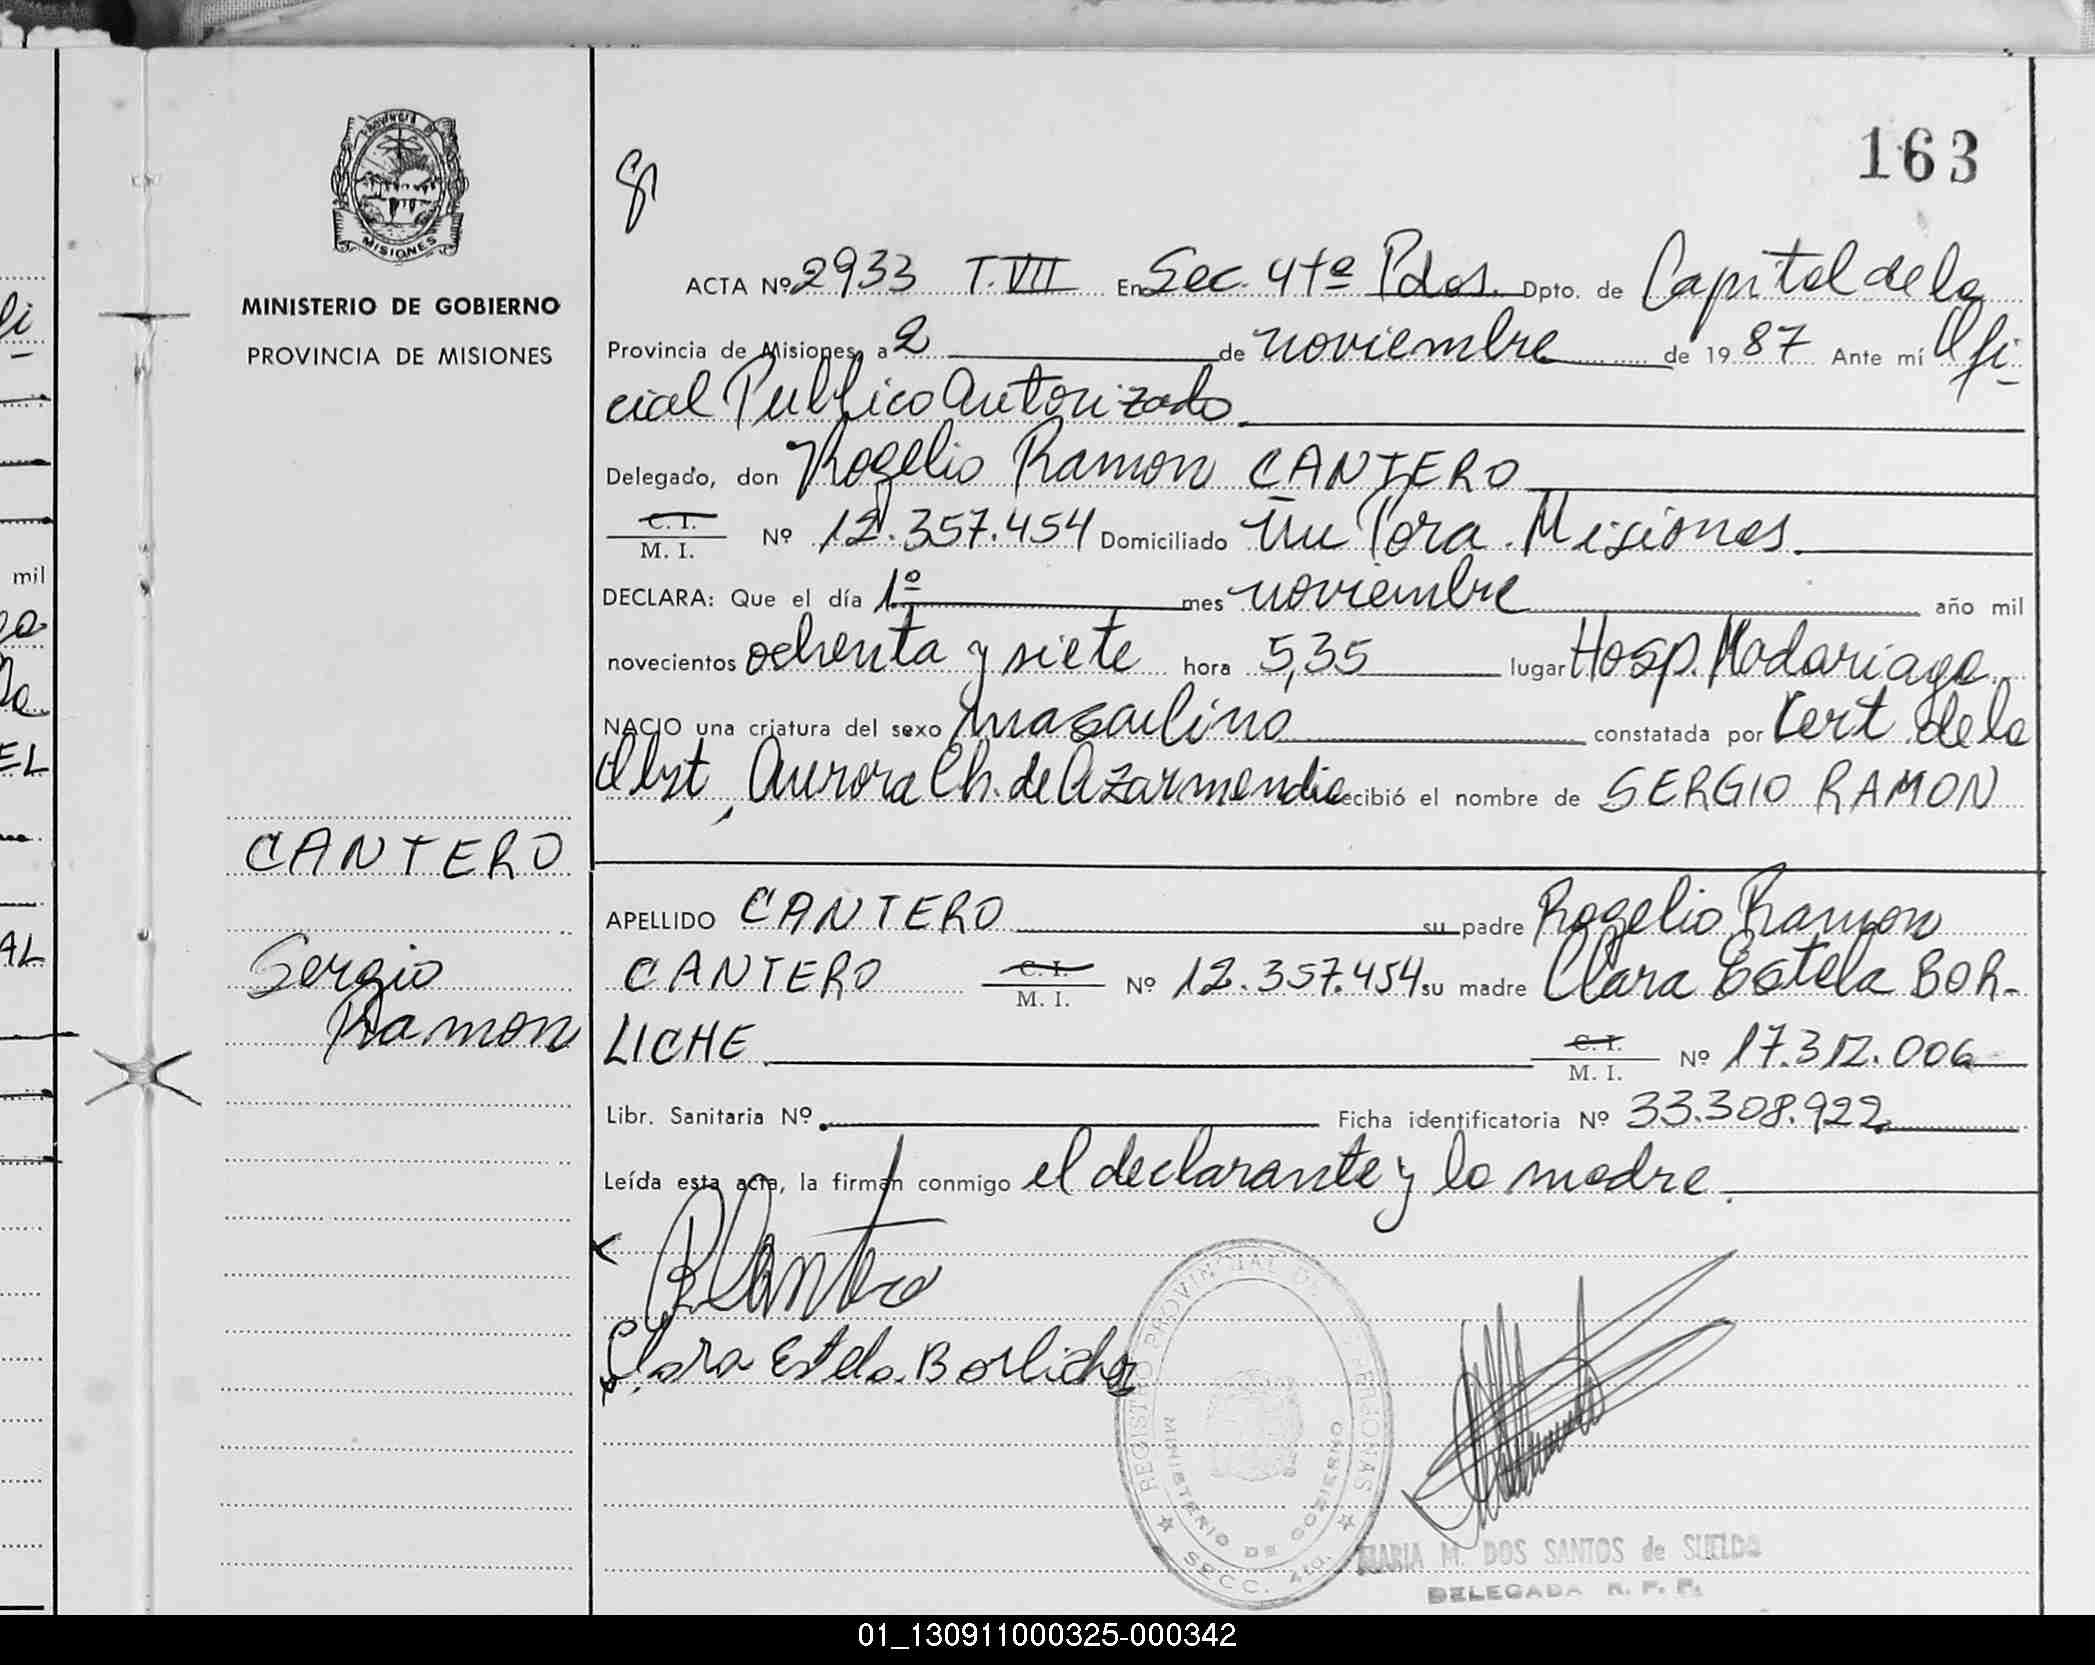 163
PROVINCIA DE
MISIONES
MINISTERIO DE GOBIERNO
PROVINCIA DE MISIONES
ACTA Nº 2933 T. VII En Sec. 4tª Pdas. Dpto. de Capital de la
Provincia de Misiones, a 2 de noviembre de 1987 Ante mí Ofi-
cial Publico Autorizado
Delegado, don Rogelio Ramon CANTERO
C. I.
M. I. Nº 12.357.454 Domiciliado Itu Pora. Misiones.
DECLARA: Que el día 1º mes noviembre año mil
novecientos ochenta y siete hora 5,35 lugar Hosp. Madariaga
NACIO una criatura del sexo masculino constatada por Cert. de la
Obst, Aurora Ch. de Azarmendia recibió el nombre de SERGIO RAMON
CANTERO
Sergio
Ramon
APELLIDO CANTERO su padre Rogelio Ramon
CANTERO C. I. M. I. Nº 12.357.454 su madre Clara Estela BOR-
LICHE C. I. M. I. Nº 17.312.006
Libr. Sanitaria Nº Ficha identificatoria Nº 33.308.922
Leída esta acta, la firman conmigo el declarante y la madre.
R Cantero
Clara Estela Borliche
REGISTRO PROVINCIAL DE PERSONAS
MINISTERIO DE GOBIERNO
SECC. 4ta.
MARIA M. DOS SANTOS de SUELDO
DELEGADA R. P. P.
mil
EL
AL
01_130911000325-000342